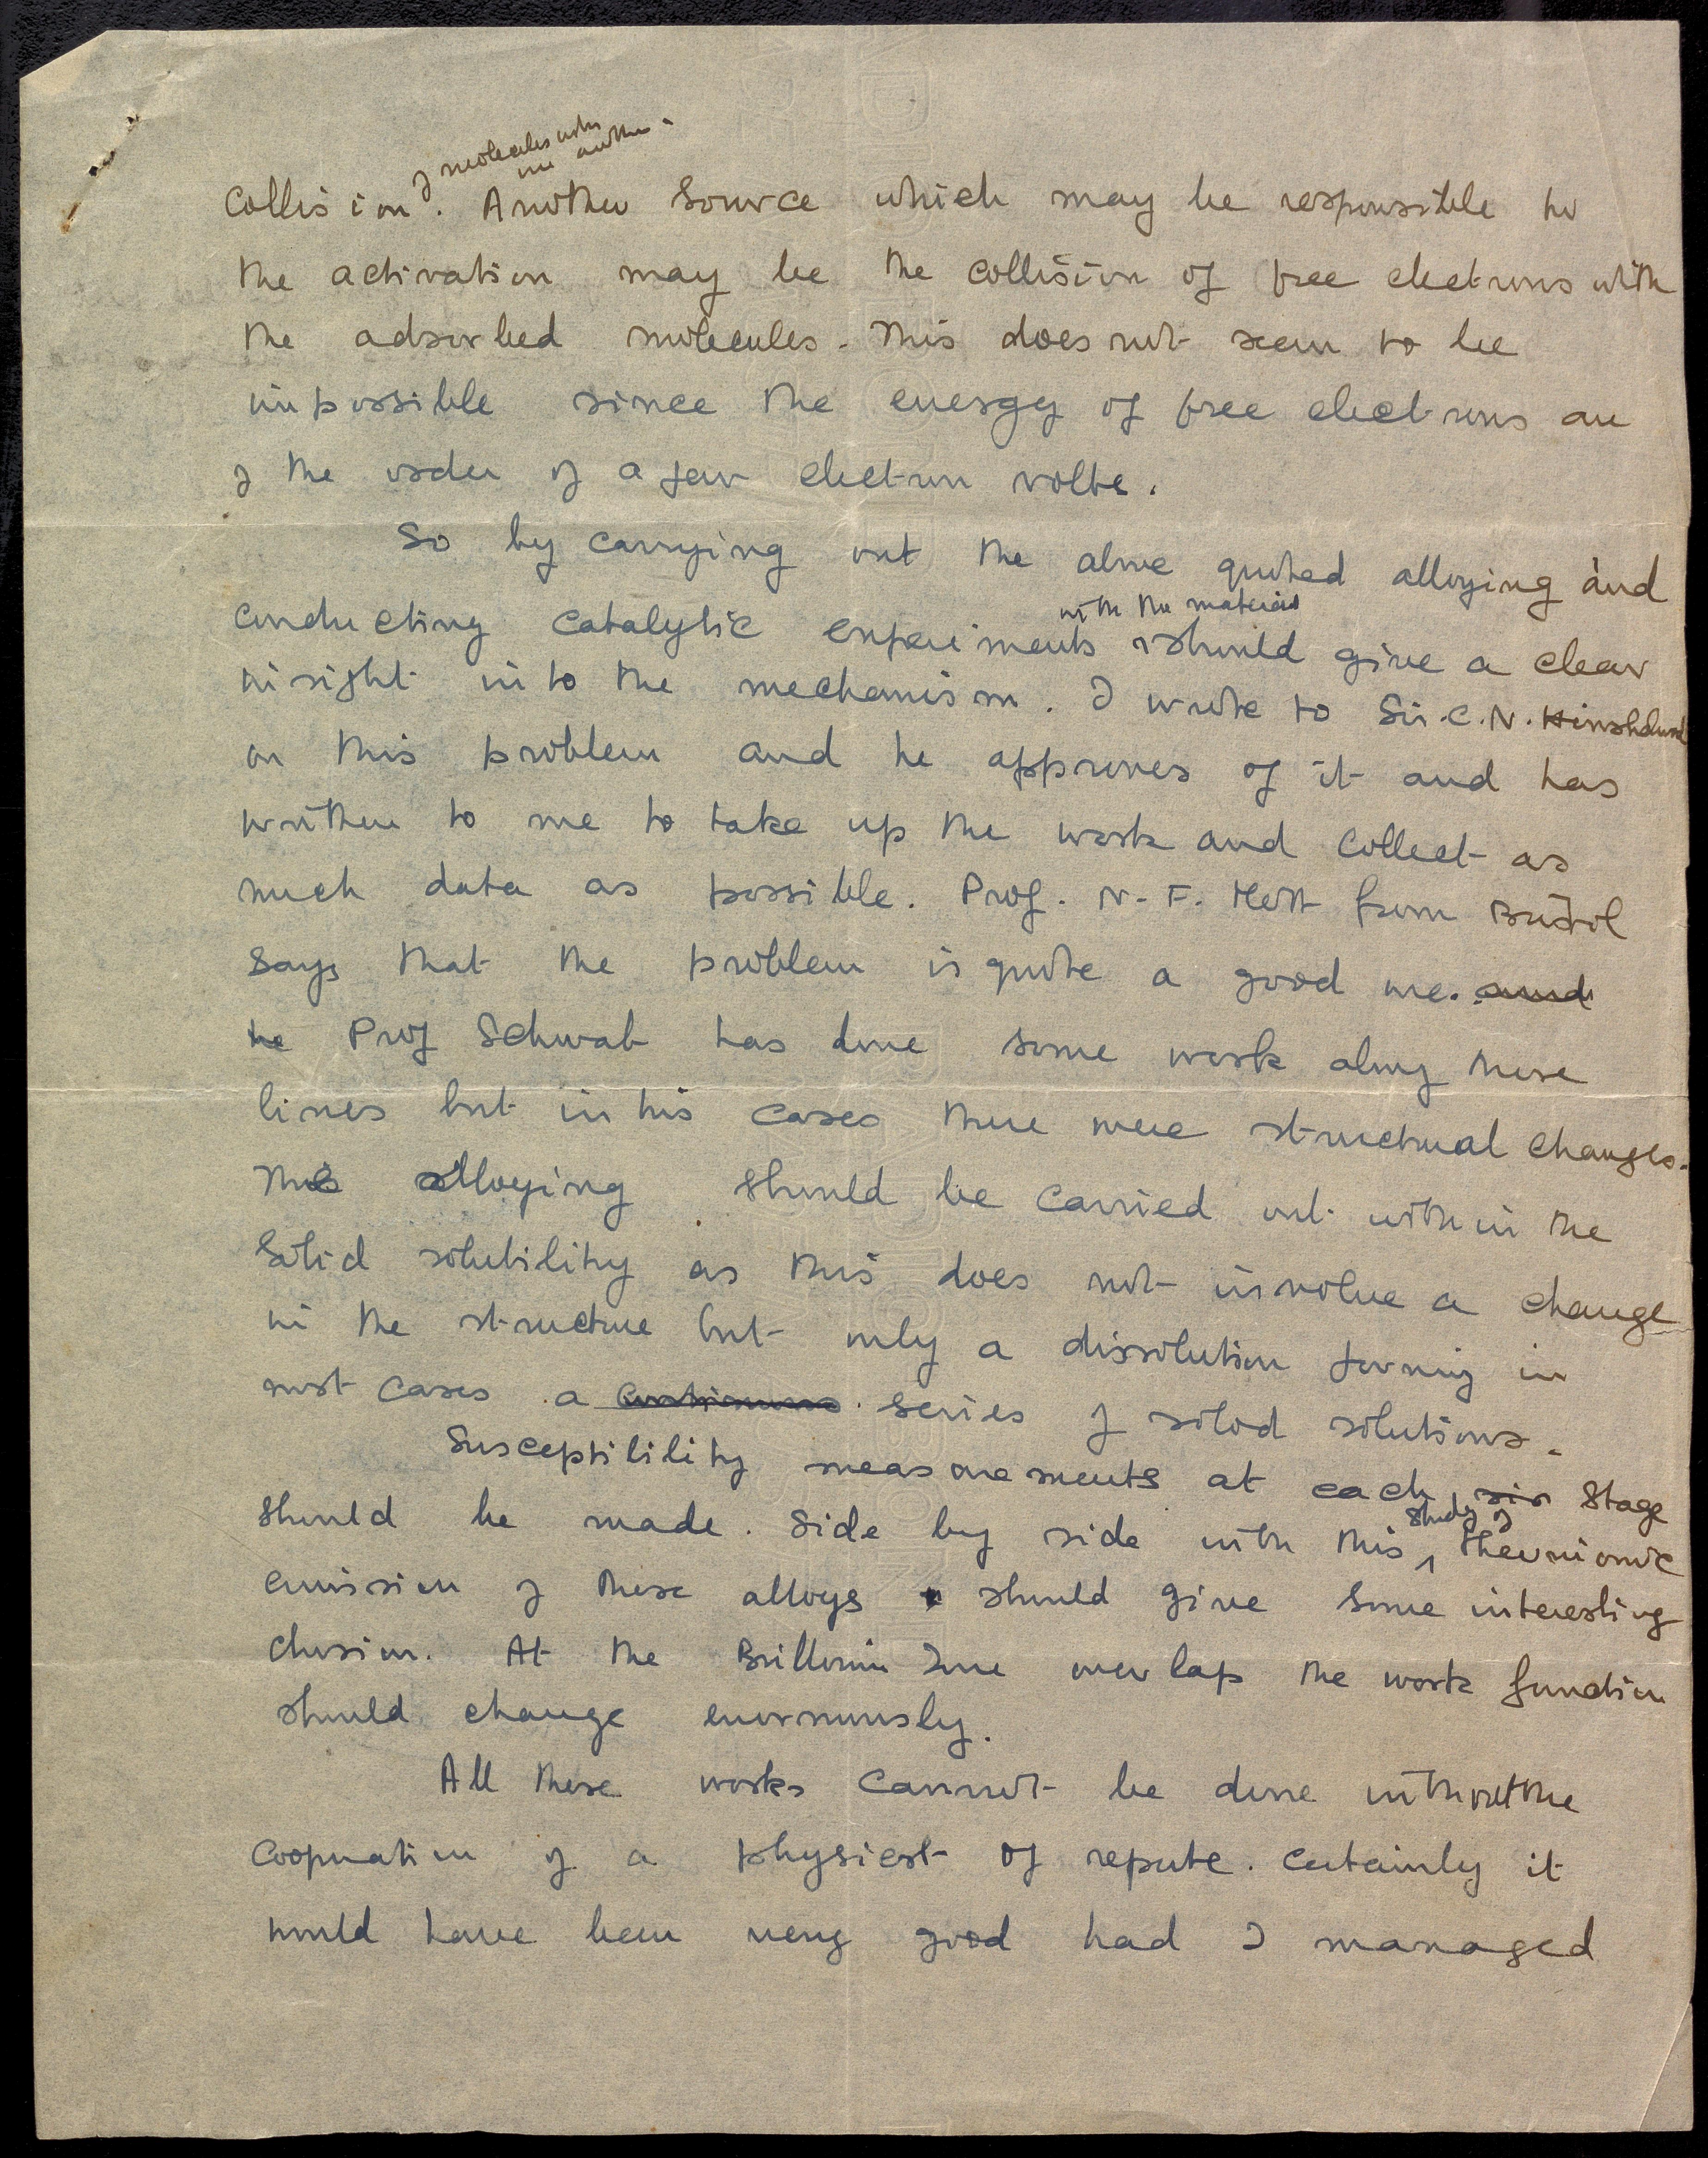 of molecules with
one another.
Collision. Another source which may be responsible to
the activation may be the collision of free electrons with
the adsorbed molecules. This does not seem to be
impossible since the energy of free electrons are
of the order of a few electron volts.
So by carrying out the above quoted alloying and
with the materials
conducting catalytic experiments should give a clear
insight into the mechanism. I wrote to Sir. C. N. Hinshelwood
on this problem and he approves of it and has
written to me to take up the work and collect as
much data as possible. Prof. N. F. Mott from Bristol
says that the problem is quite a good one. and
he Prof Schwab has done some work along these
lines but in his cases there were structural changes.
The alloying should be carried out within the
Solid solubility as this does not involve a change
in the structure but only a dissolution forming in
most cases a continuous series of solod solutions.
Susceptibility measurements at each stage
study of
should be made. Side by side with this thermionic
emission of these alloys should give some interesting
clusion. At the Brillouin Zone overlap the work function
should change enormously.
All these works cannot be done without the
cooperation of a physicist of repute. Certainly it
would have been very good had I managed